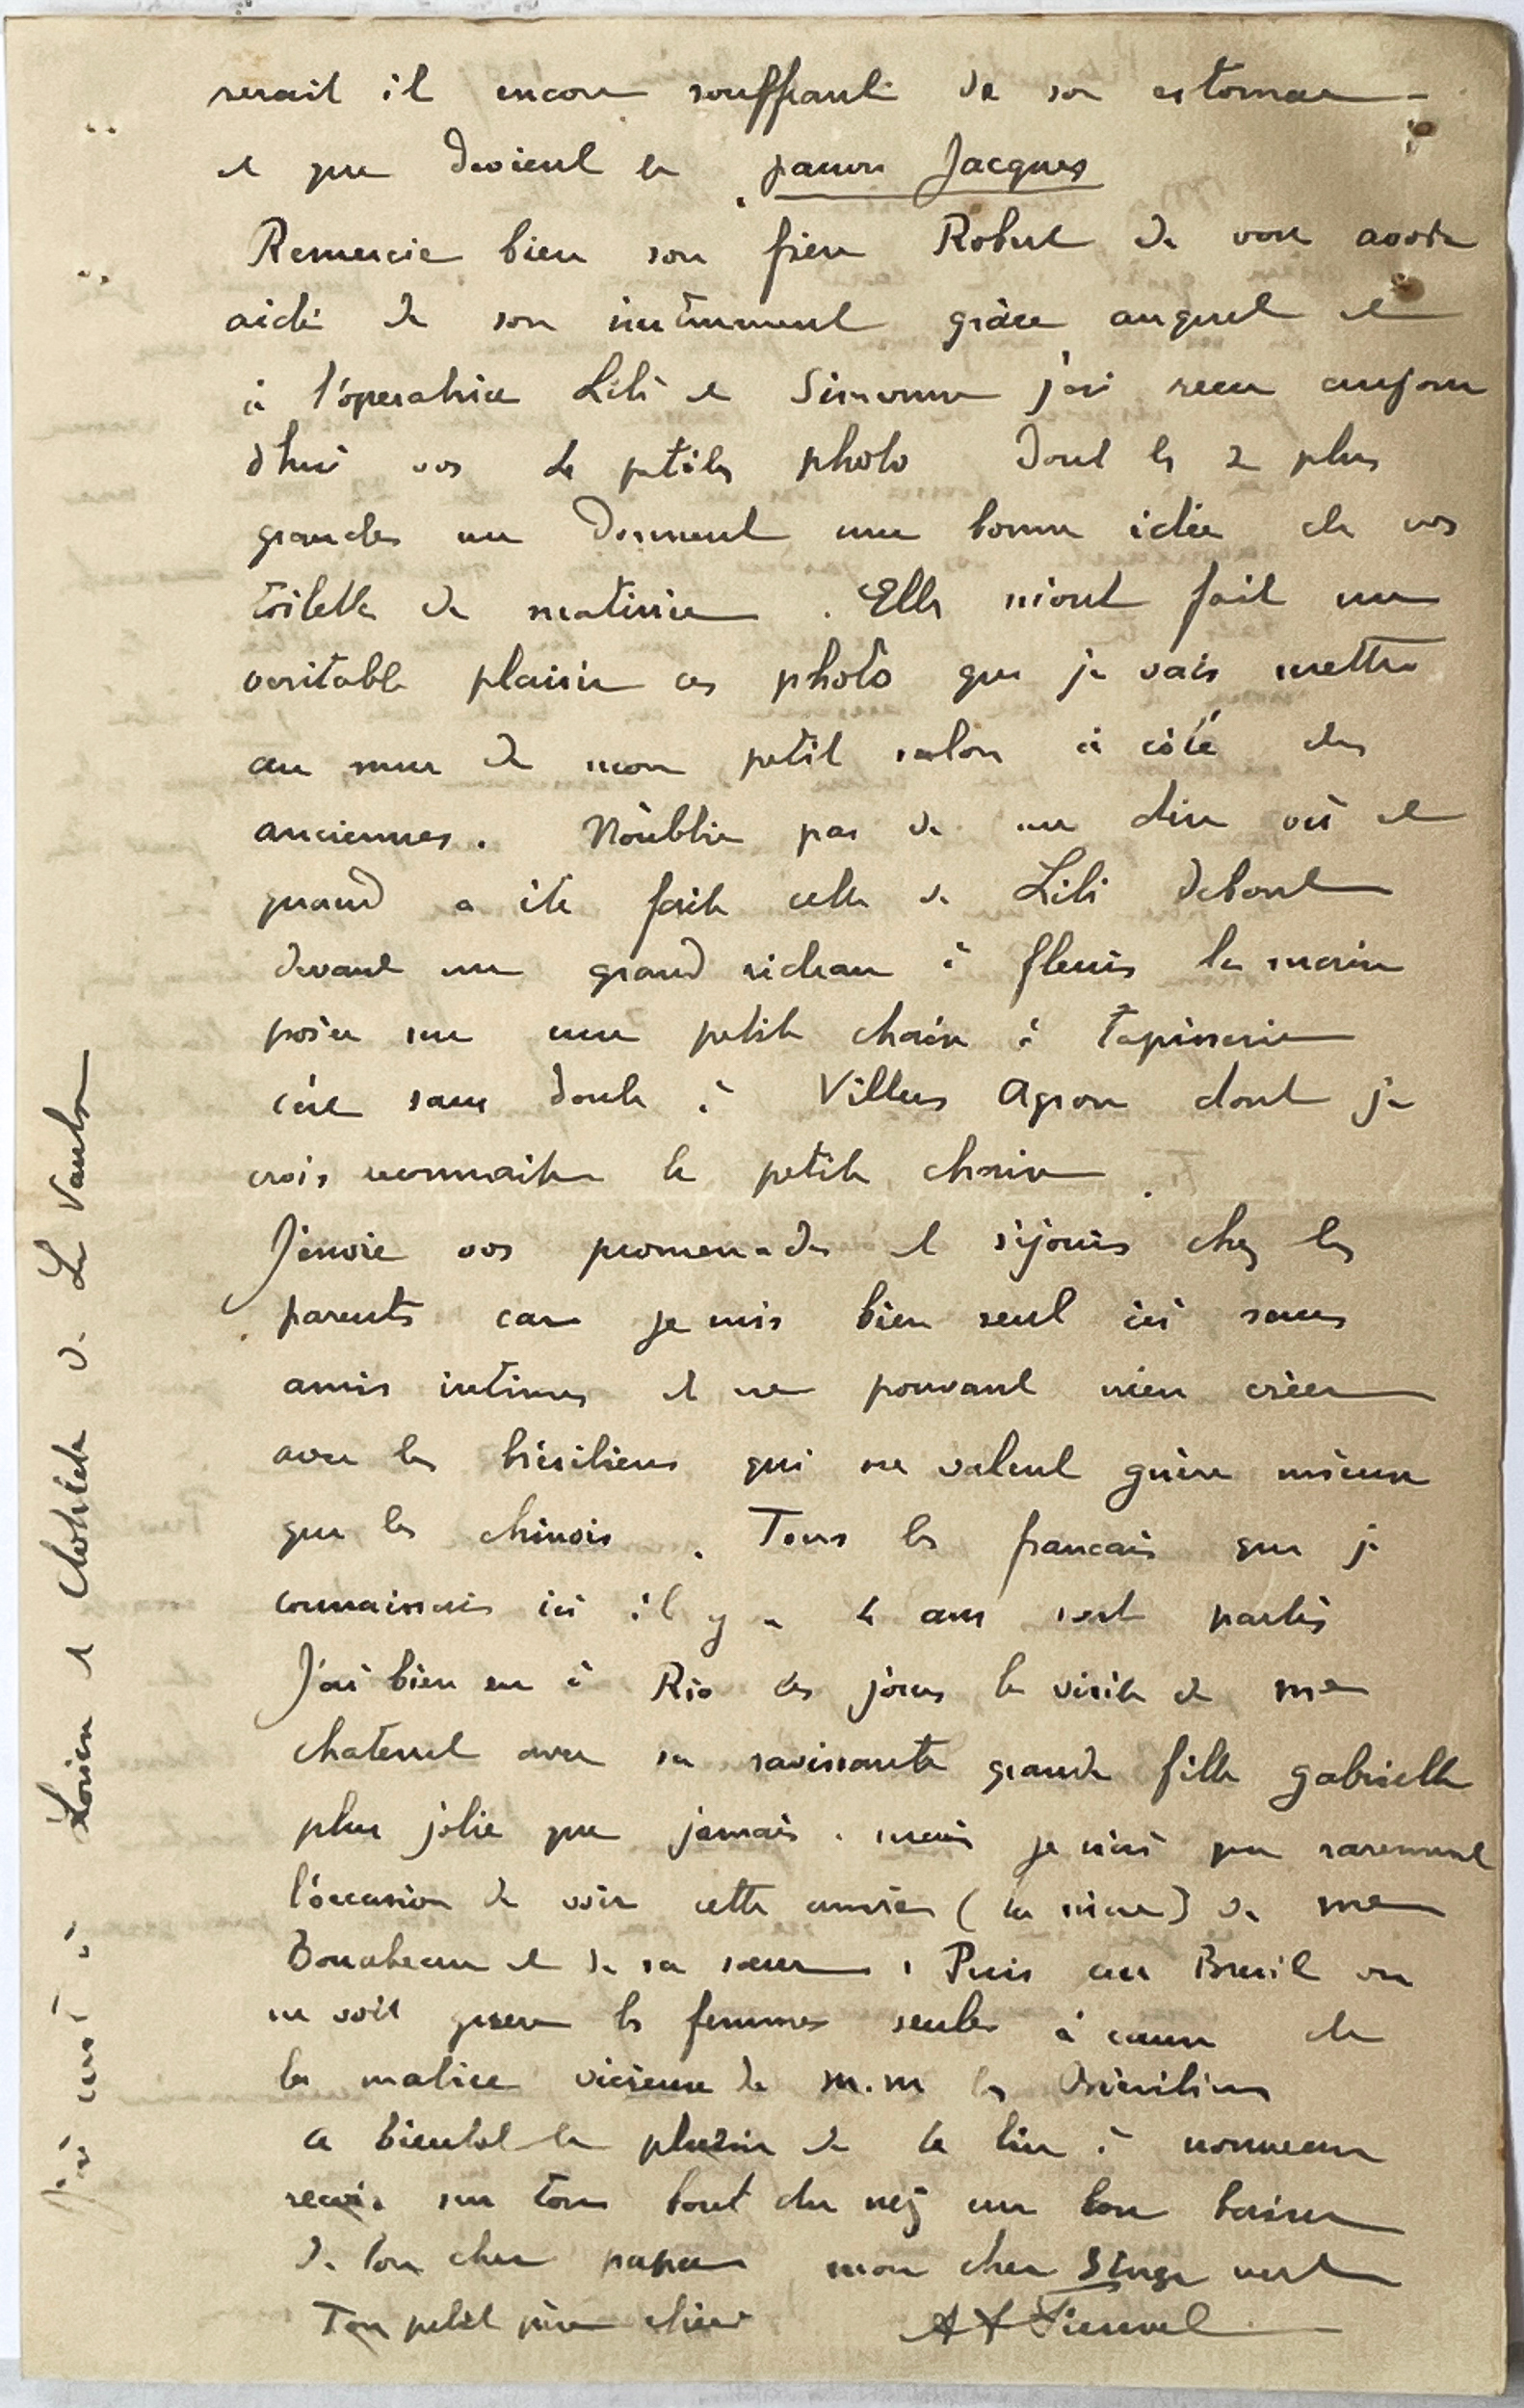 serait il encore souffrant de son estomac -
et que devient le pauvre Jacques
Remercie bien son frère Robert de vous avoir
aidé de son instrument grâce auquel et
à l'operatrice Lili et Simonne j'ai recu aujour
d'hui vos 4 petites photo dont les 2 plus
grandes me donnent une bonne idée de vos
toilette de matinée. Elles m'ont fait un
veritable plaisir ces photo que je vais mettre
au mur de mon petit salon à côté des
anciennes. N'oublie pas de me dire où et
quand a été faite celle de Lili debout
devant un grand rideau à fleurs la main
posée sur une petite chaise à tapisserie
c'est sans doute à Villers Agron dont je
crois reconnaitre la petite chaise.
J'envie vos promenades et séjours chez les
parents car je suis bien seul ici sans
amis intimes et ne pouvant rien créer
avec les brésiliens qui ne valent guère mieux
que les chinois. Tous les francais que je
connaissais ici il y a 4 ans sont partis
J'ai bien eu à Rio ces jours la visite de Me
chatenet avec sa ravissante grande fille gabrielle
plus jolie que jamais. mais je n'ai que rarement
l'occasion de voir cette amie (la mère) de Me
et de sa sœur. Puis au Bresil on
ne voit guere les femmes seules à cause de
la malice vicieuse de M.M les Brésiliens
a bientot le plaisir de te lire à nouveau
recois sur ton bout du nez un bon baiser
de ton cher papa mon cher Singe vert
Ton petit père chéri
J'ai écrit à Lucien et Clotilde de